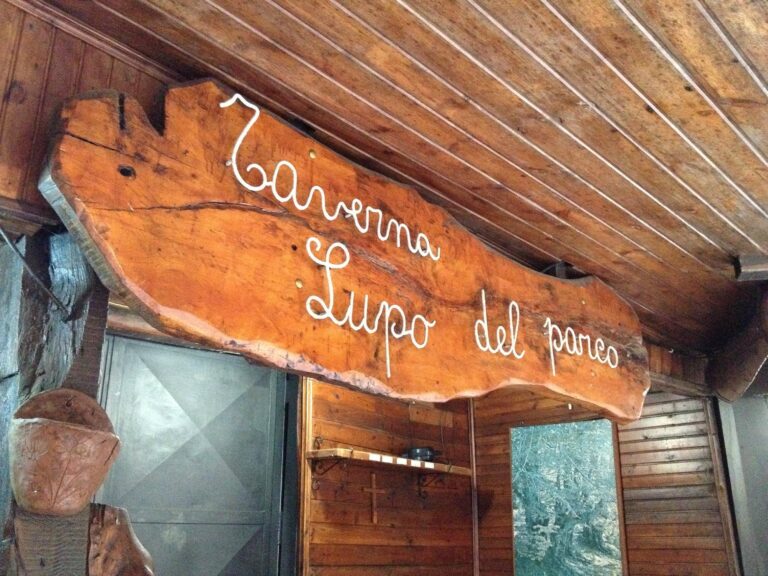 Taverna
Lupo del parco